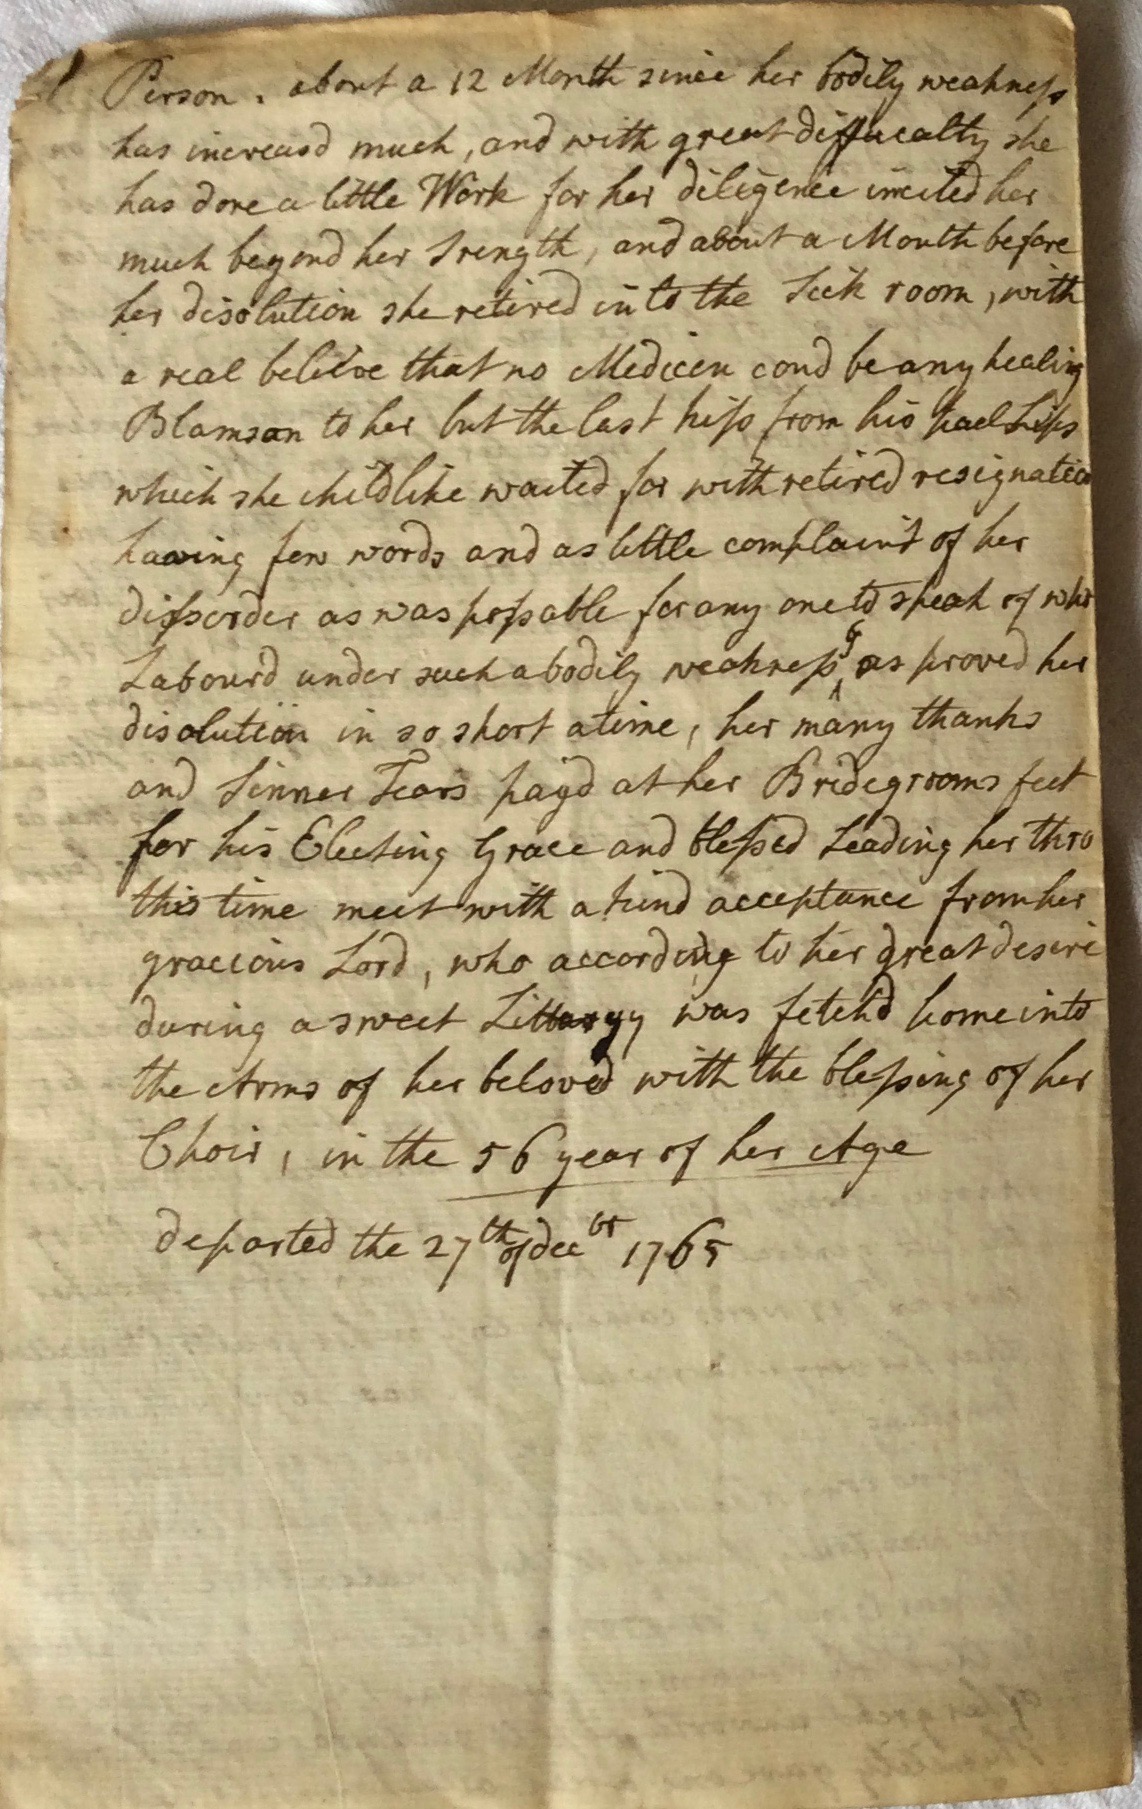 Person. about a 12 Month since her bodily weakness
has increasd much, and with great diffucalty she
has done a little Work for her diligence incited her
much beyond her Strength, and about a Month before
her disolution she retired into the Sick room, with
a real believe that no Medicen coud be any healing
Blamson to her but the last kiss from his pael Lips
which she childlike waited for with retired resignation
having few words and as little complaint of her
dissorder as was possable for any one to speak of who
Labourd under such a bodily weakness, as proved her
disolution in so short a time, her many thanks
and Sinner Tears payd at her Bridegrooms feet
for his Electing Grace and blessed Leading her thro
this time meet with a kind acceptance from her
gracious Lord, who according to her great desire
during a sweet Litturgy was fetchd home into
the Arms of her beloved with the blessing of her
Choir, in the 56 year of her Age
departed the 27th of decbr 1765